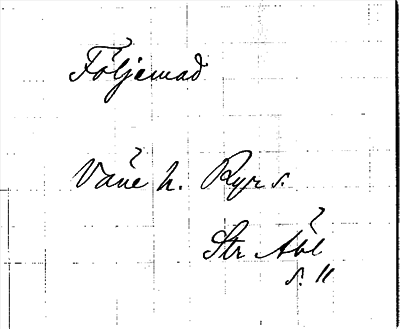 Följemad
Våne h. Ryr s.
Str Åbl
s. 11